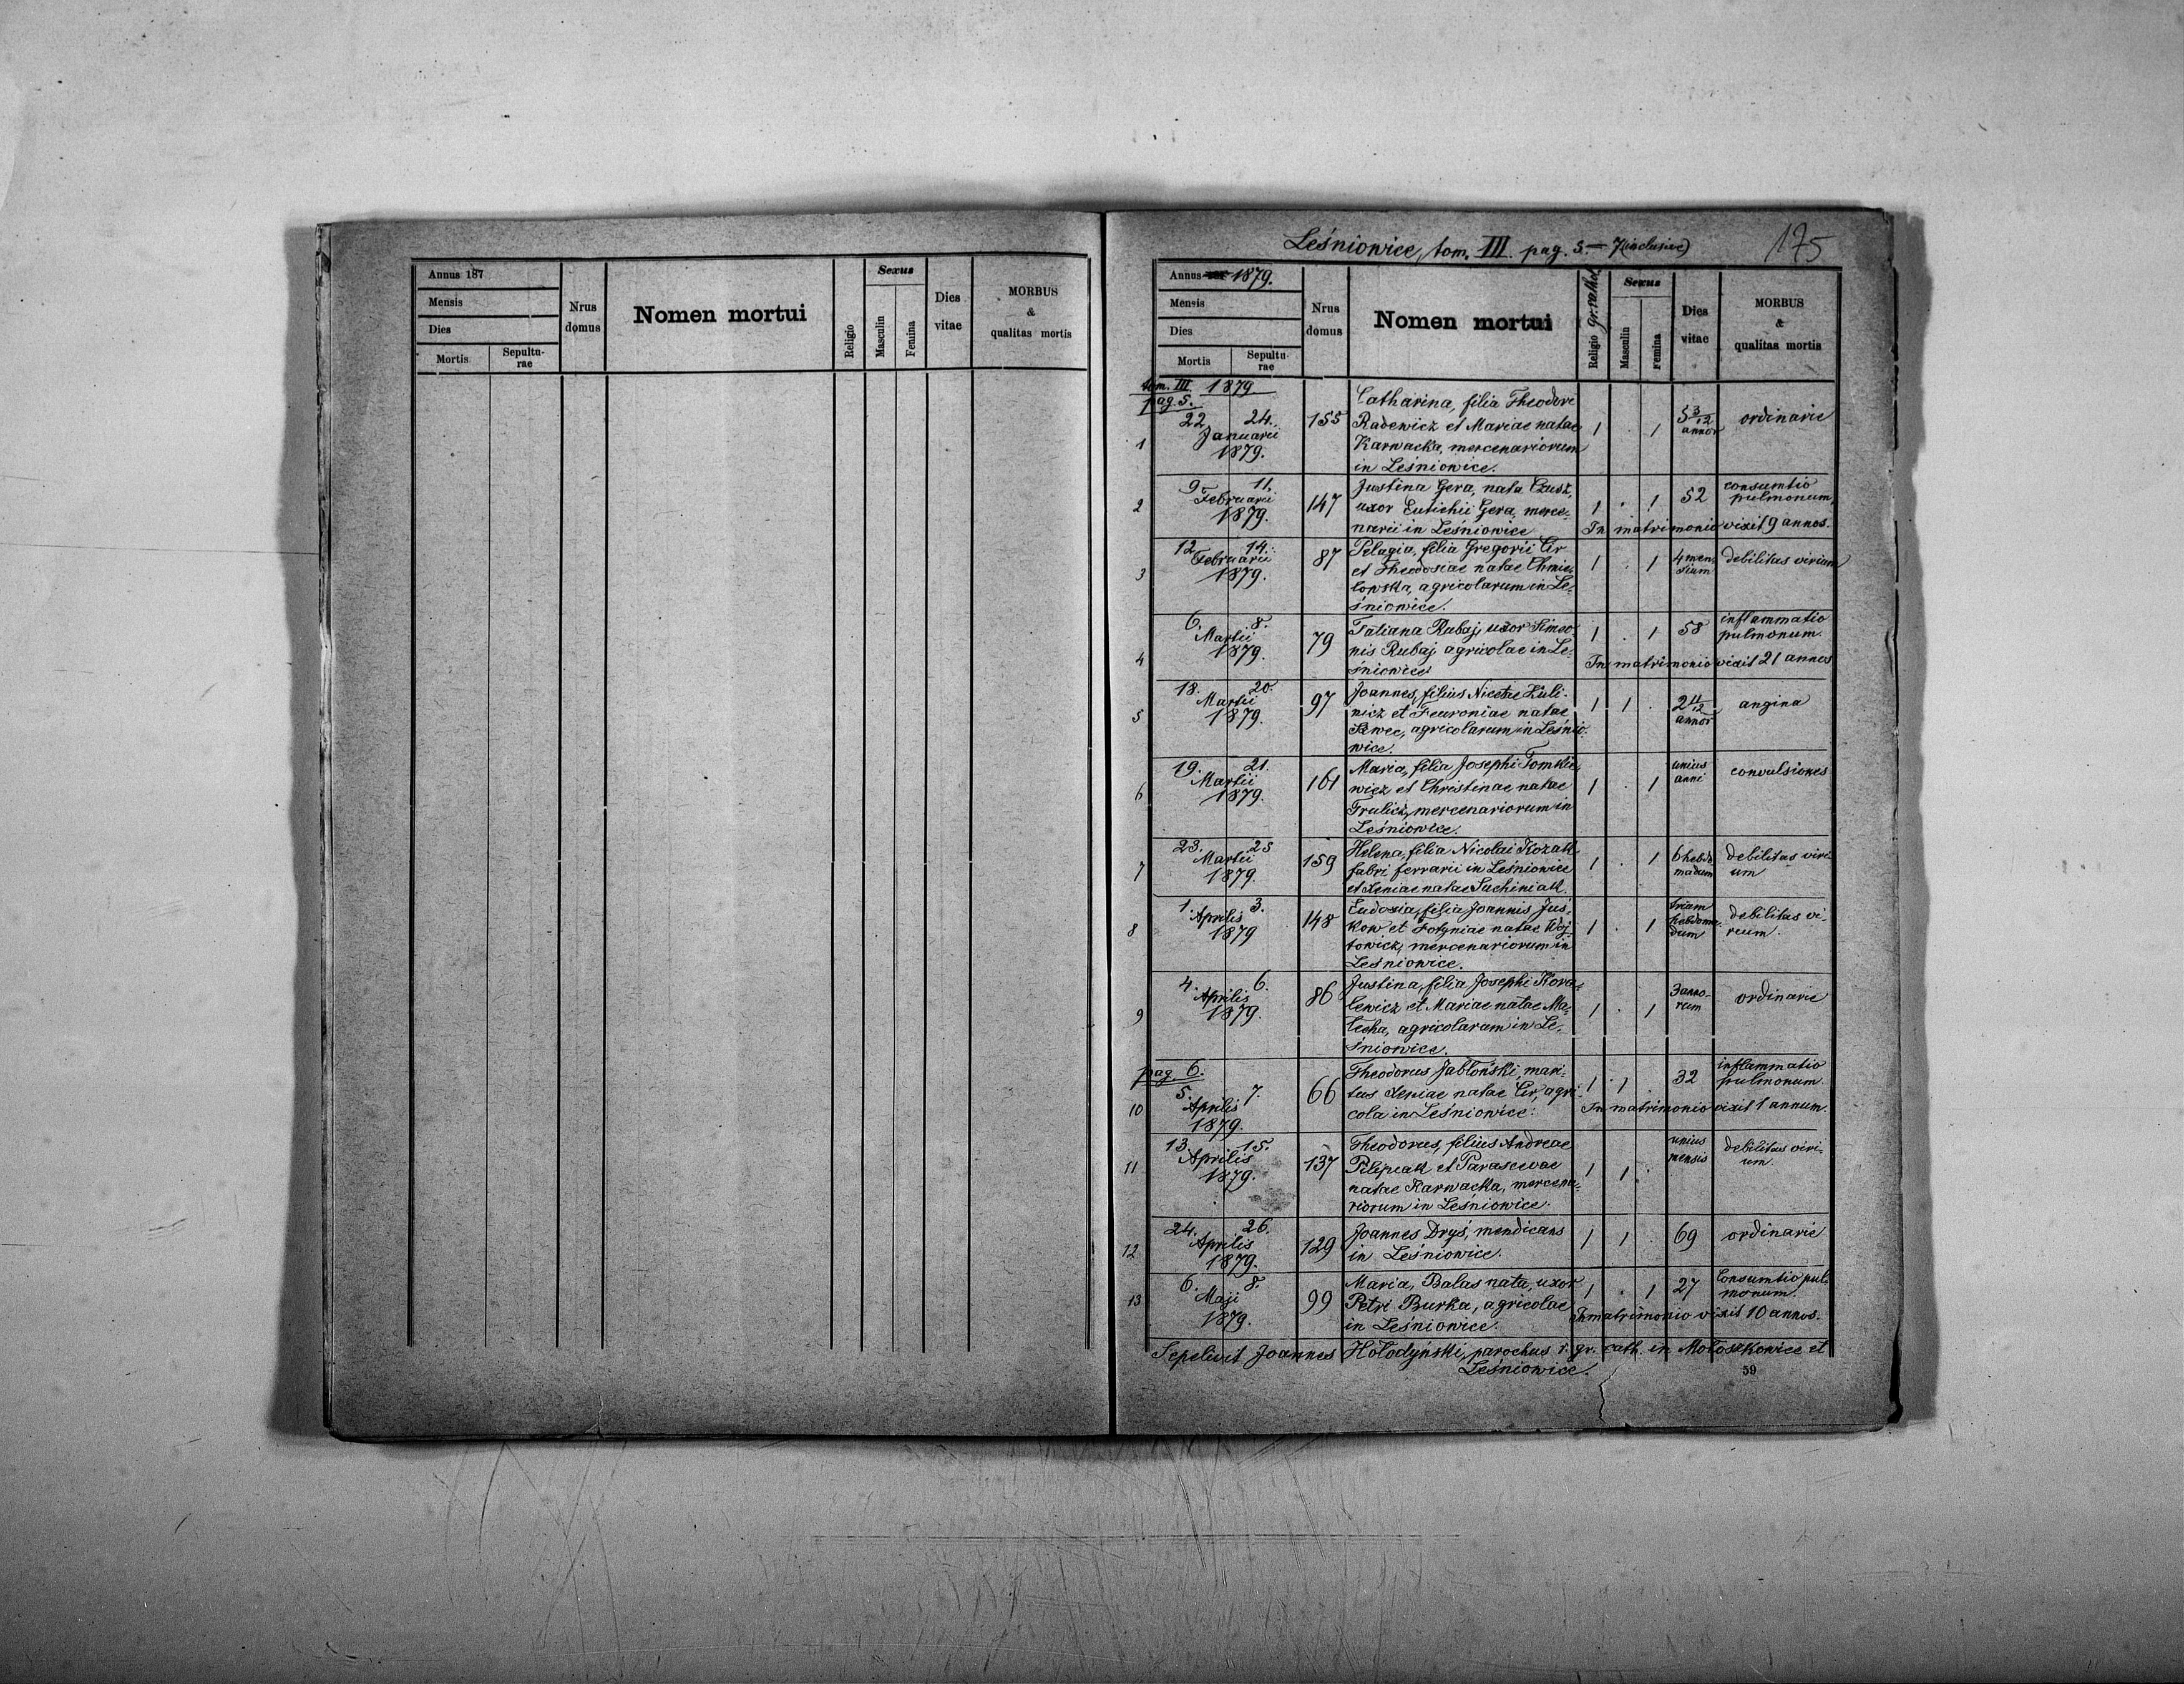 Annus 187
Mensis
Dies
Mortis
Sepultu-
rae
Nrus
domus
Nomen mortui
Religio
Sexus
Masculin
Femina
Dies
vitae
MORBUS
&
qualitas mortis
Leśniowice, tom. III. pag. 5.— 7 (inclusive)
175
Annus 1879.
Mensis
Dies
Mortis
Sepultu
rae
Nrus
domus
Nomen mortui
Religio gr. cathol.
Sexus
Masculin
Femina
Dies
vitae
MORBUS
&
qualitas mortis
tom. III 1879
pag. 5.
1
22 24.
Januarii
1879.
155
Catharina, filia Theodori
Radewicz et Mariae natae
Karwacka, mercenariorum
in Leśniowice.
1 . 1
5 3/12
annor
ordinarie
2
9 11.
Februarii
1879.
147
Justina Gera, nata Czusz,
uxor Eutichii Gera, merce-
narii in Leśniowice
1 . 1
52
consumtio
pulmonum
In matrimonio vixit 9 annos.
3
12 14.
Februarii
1879.
87
Pelagia, filia Gregorii Cir
et Theodosiae natae Chmie-
lowska, agricolarum in Le-
śniowice.
1 . 1
4 men-
sium
debilitas virium
4
6. 8.
Martii
1879.
79
Tatiana Rubaj, uxor Simeo-
nis Rubaj agricolae in Le-
śniowice
1 . 1
58
inflammatio
pulmonum.
In matrimonio vixit 21 annos
5
18. 20.
Martii
1879.
97
Joannes, filius Nicetae Kuli-
nicz et Feuroniae natae
Szwec, agricolarum in Leśnio-
wice.
1 1 .
2 11/12
annor
angina
6
19. 21.
Martii
1879.
161
Maria, filia Josephi Tomkie-
wicz et Christinae natae
Trulicz, mercenariorum in
Leśniowice.
1 . 1
unius
anni
convulsiones
7
23. 25
Martii
1879.
159
Helena, filia Nicolai Kozak
fabri ferrarii in Leśniowice
et Xeniae natae Suchiniak.
1 . 1
6 hebdo
madum
debilitas viri-
um
8
1. 3.
Aprilis
1879
148
Eudoxia, filia Joannis Jus-
kow et Fotyniae natae Wój-
towicz, mercenariorum in
Leśniowice.
1 . 1
trium
hebdoma-
dum
debilitas vi-
rium.
9
4. 6.
Aprilis
1879.
86
Justina, filia Josephi Kowa-
lewicz et Mariae natae Ma-
lecha, agricolarum in Le-
śniowice.
1 . 1
3 anno-
rum
ordinarie
pag. 6.
10
5. 7.
Aprilis
1879.
66
Theodorus Jabłoński, mari-
tus Xeniae natae Cir, agri-
cola in Leśniowice.
1 1 .
32
inflammatio
pulmonum
In matrimonio vixit 1 annum.
11
13. 15.
Aprilis
1879.
137
Theodorus, filius Andreae
Pilipiak et Parascevae
natae Karwacka, mercena-
riorum in Leśniowice.
1 1 .
unius
mensis
debilitas viri-
um.
12
24. 26.
Aprilis
1879.
129
Joannes Dryś, mendicans
in Leśniowice.
1 1 .
69
ordinarie
13
6. 8.
Maji
1879.
99
Maria, Balas nata, uxor
Petri Burka, agricolae
in Leśniowice.
1 . 1
27
Consumtio pul-
monum.
In matrimonio vixit 10 annos.
Sepelivit Joannes Hołodyński, parochus r. gr. cath. in Mołoszkowice et
Leśniowice.
59